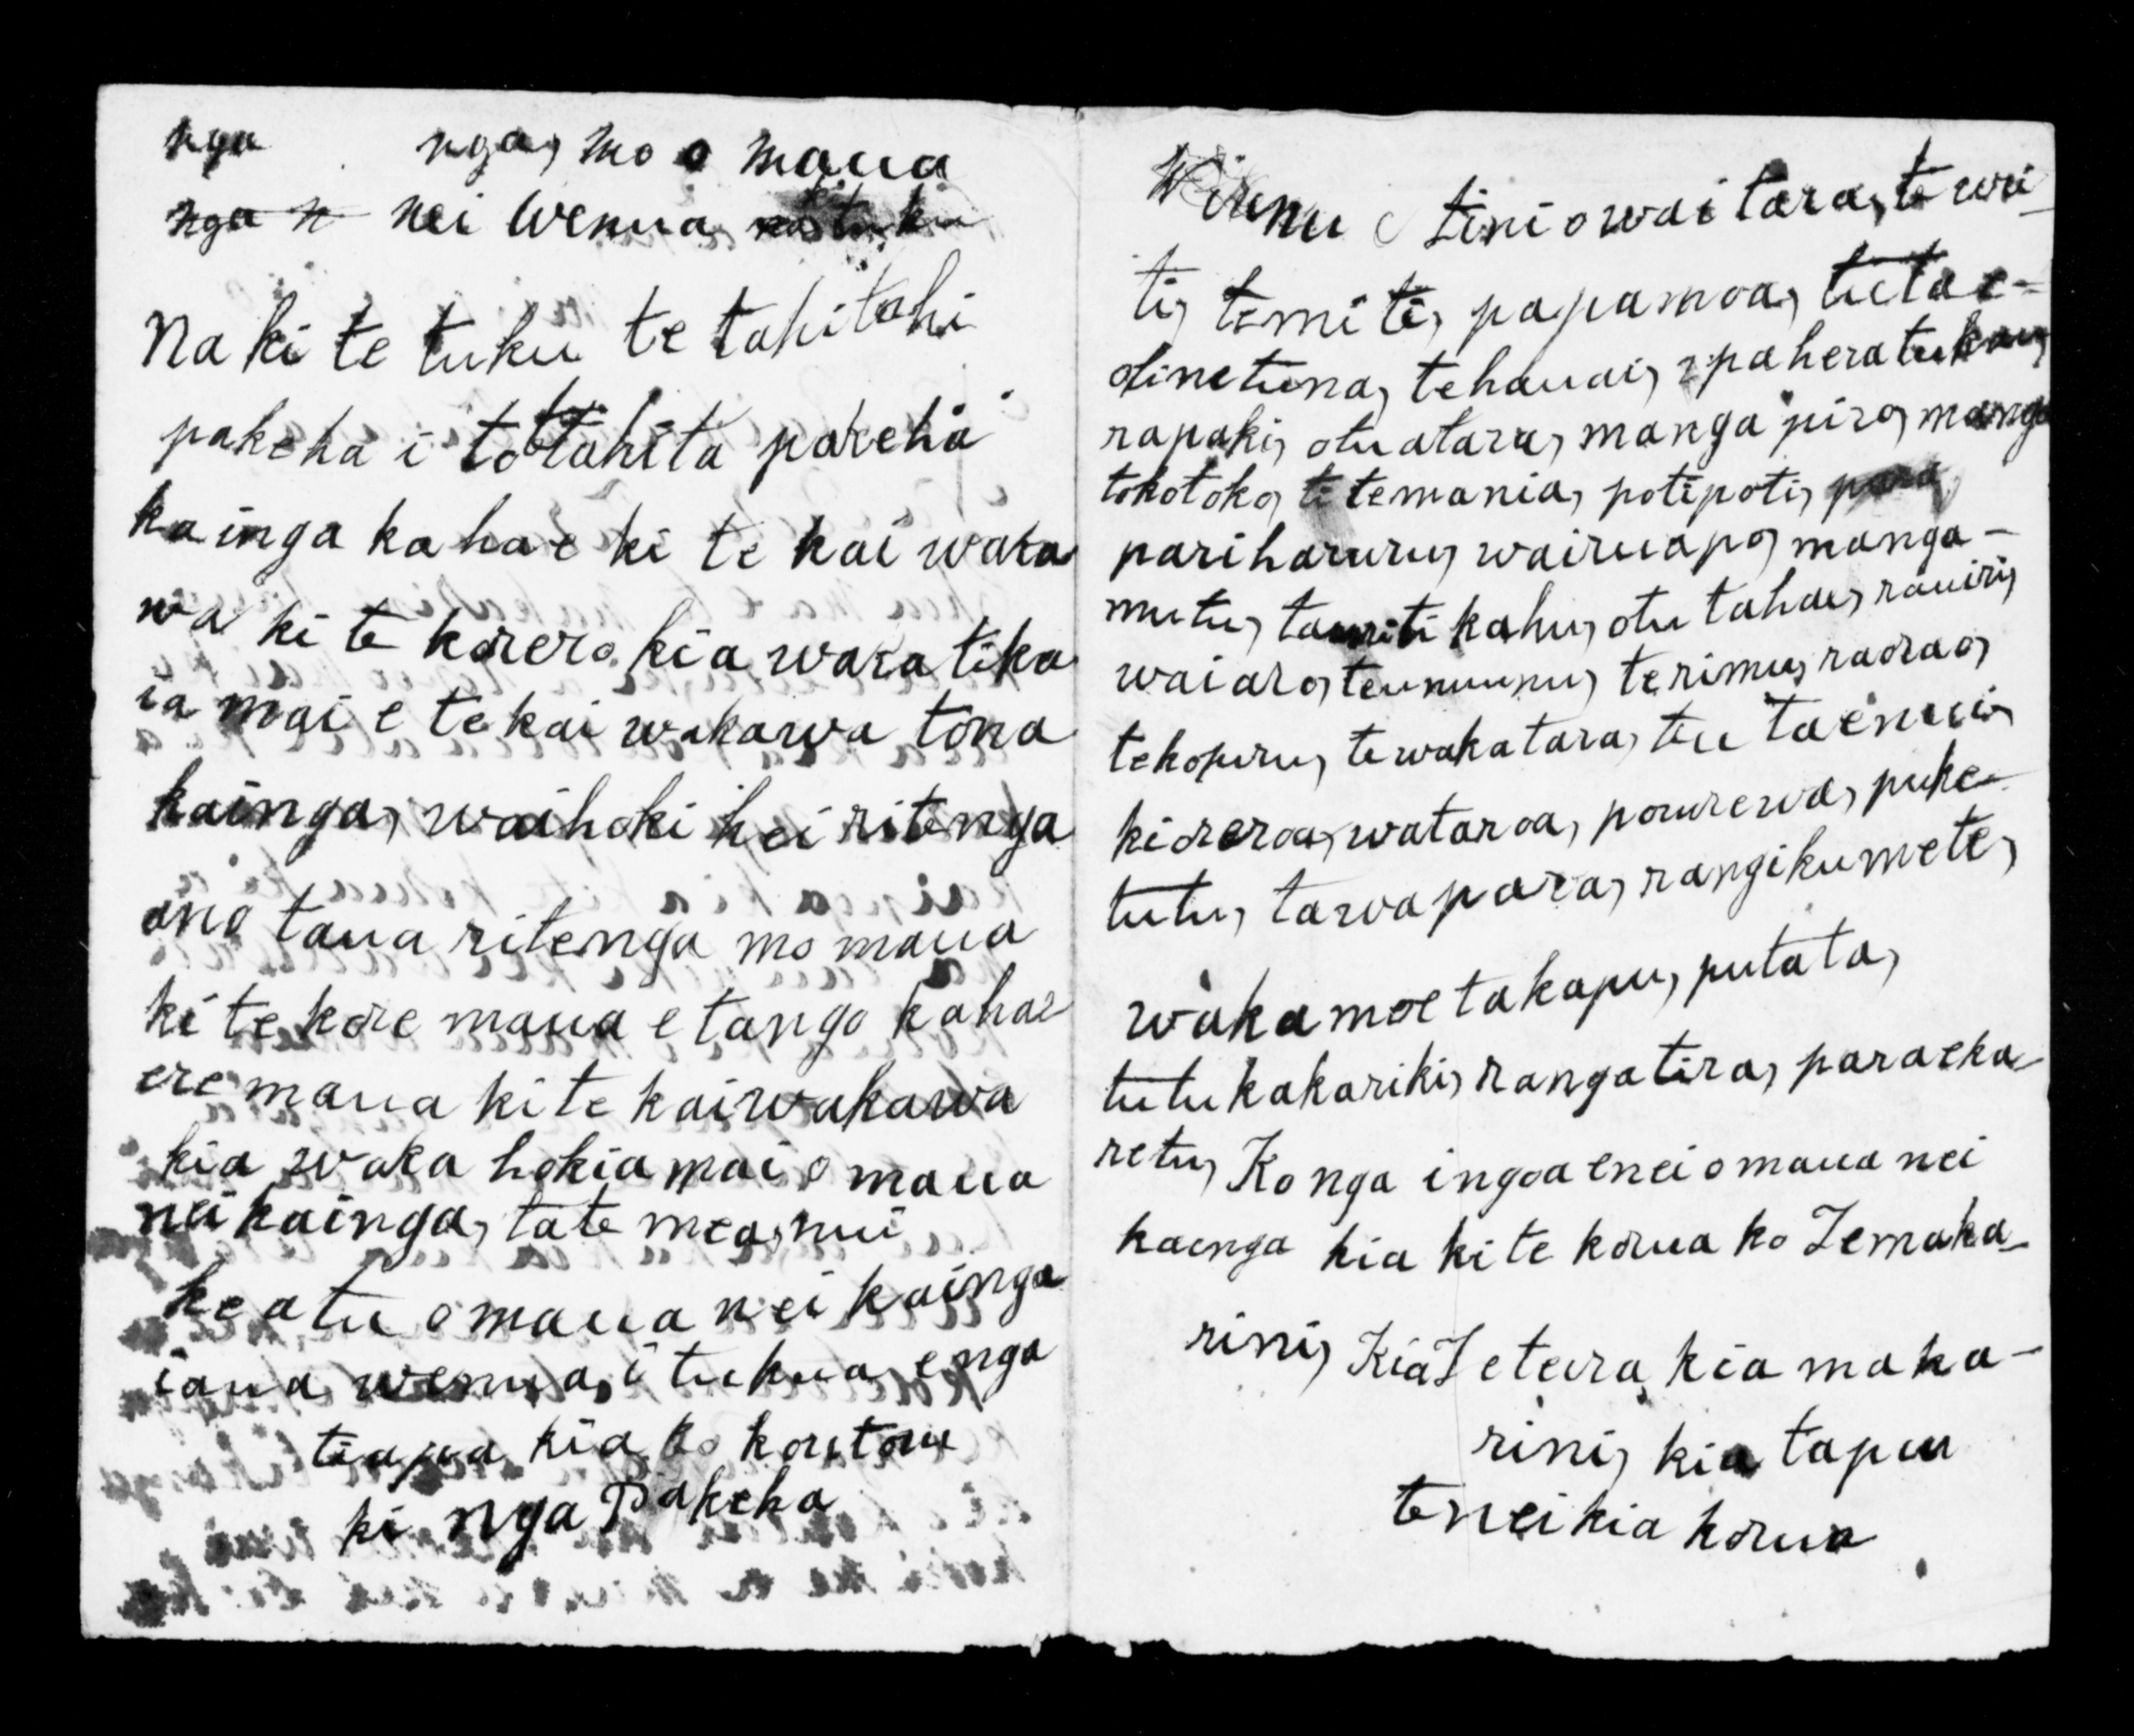 nga nga, mo o maua
nga n nei Wenua
Na ki te tuku te tahi tahi
pakeha i to tahita pakeha
kainga ka hae ki te kai waka
wa ki te korero kia waka tika
ia mai e te kai wakawa tona
kainga, waihoki hei ritenga
ano taua ritenga mo maua
ki te kore maua e tango ka hae
ere maua ki te kaiwakawa
kia waka hokia mai o maua
nei kainga, ta te mea, nui
ke atu o maua nei kainga
iana wenua, i tukua, e nga
tiapua kia ko koutou
ki nga Pakeha
Wirunu tini o waitara, te wri-
ti, temiti, papamoa, tutae-
otinetuna, tehauai, paheratukau,
rapaki, otuatara, manga piro, manga
tokotoko, titemania, potipoti, para
pariharuru, wairuapo, manga-
mutu, tauritikahu, otutahae, rauiri,
waiaro, teunuunu, terimu, raorao,
tekopuru, tewakatara, tu taenui,
kioreroa, wataroa, pourewa, puke-
tutu, tawapara, rangikumete,
wakamoetakapu, putata,
tutukakariki, rangatira, paraeka-
retu, Ko nga ingoa enei o maua nei
kaenga kia kite korua ko Temaka-
rini, Kia Teteira kia maka-
rini, kia tapu
tenei kia korua